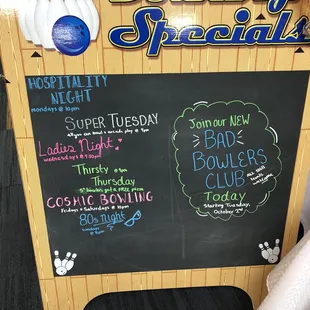 Specials
HOSPITALITY
NIGHT
mondays @ 10pm
SUPER TUESDAY
all you can bowl + arcade play @ 9pm
Ladies Night
wednesdays @ 9:30pm
Thirsty @ 9pm
Thursday
COSMIC BOWLING
Fridays + Saturdays @ 10pm
80s night
Join our NEW
BAD
BOWLERS
CLUB
Today
Starting Tuesday,
October 2nd